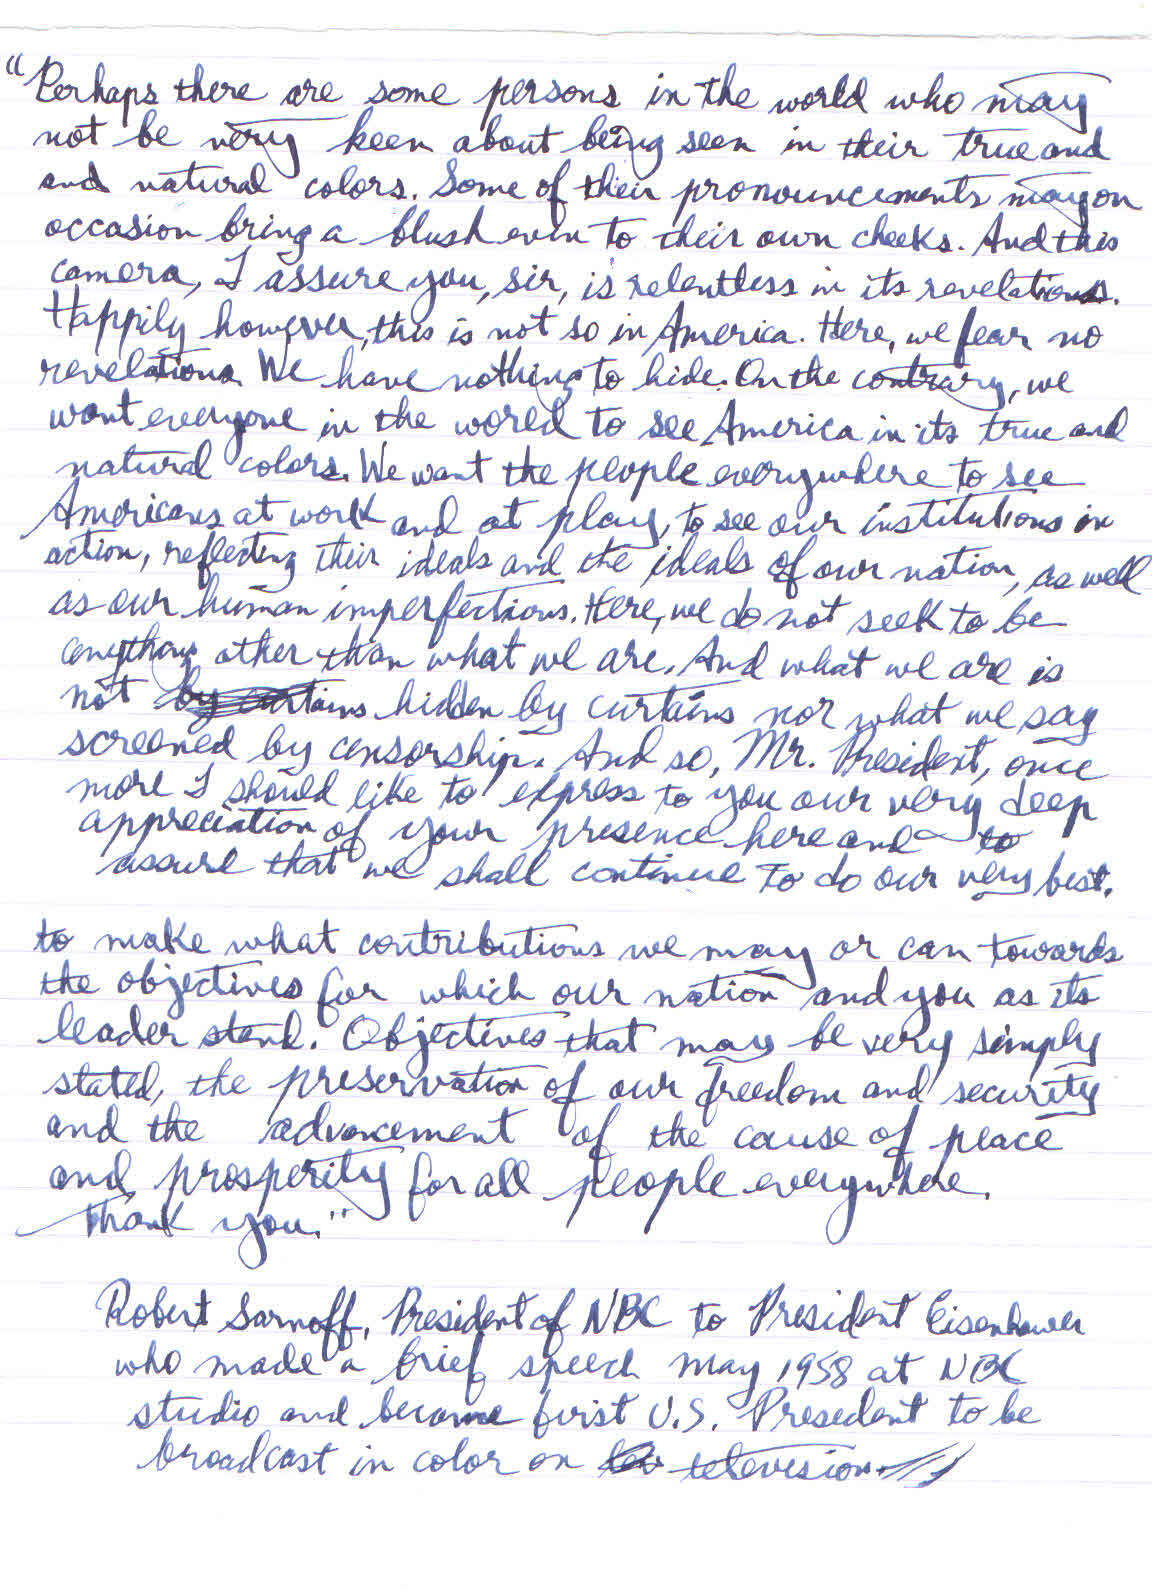 "Perhaps there are some persons in the world who may
not be very keen about being seen in their true and
and natural colors. Some of their pronouncements may on
occasion bring a blush even to their own cheeks. And this
camera, I assure you, sir, is relentless in its revelations.
Happily however, this is not so in America. Here, we fear no
revelations. We have nothing to hide. On the contrary, we
want everyone in the world to see America in its true and
natural colors. We want the people everywhere to see
Americans at work and at play, to see our institutions in
action, reflecting their ideals and the ideals of our nation, as well
as our human imperfections. Here, we do not seek to be
anything other than what we are. And what we are is
not by curtains hidden by curtains nor what we say
screened by censorship. And so, Mr. President, once
more I should like to express to you our very deep
appreciation of your presence here and to
assure that we shall continue to do our very best.
to make what contributions we may or can towards
the objectives for which our nation and you as its
leader stand. Objectives that may be very simply
stated, the preservation of our freedom and security
and the advancement of the cause of peace
and prosperity for all people everywhere.
Thank you."
Robert Sarnoff, President of NBC to President Eisenhower
who made a brief speech May 1958 at NBC
studio and became first U.S. President to be
broadcast in color on television.